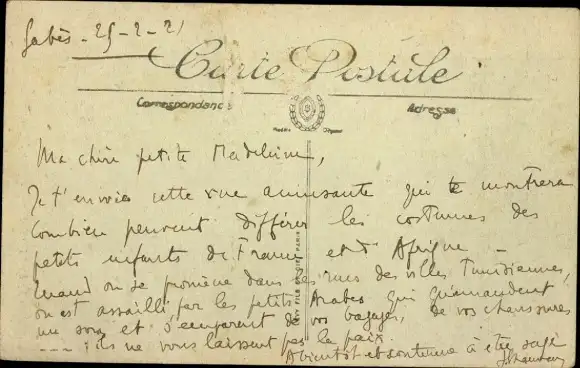 Gabès - 25-2-21
Carte Postale
Correspondance
Adresse
Ma chère petite Madeleine,
Je t'envoie cette vue amusante qui te montrera
combien peuvent différer les costumes des
petits enfants de France et d'Afrique -
Quand on se promène dans les rues des villes Tunisiennes,
on est assailli par les petits Arabes qui quémandent
un sou, et s'emparent de vos bagages, de vos chaussures
---- ils ne vous laissent pas la paix.
A bientôt et continue à être sage